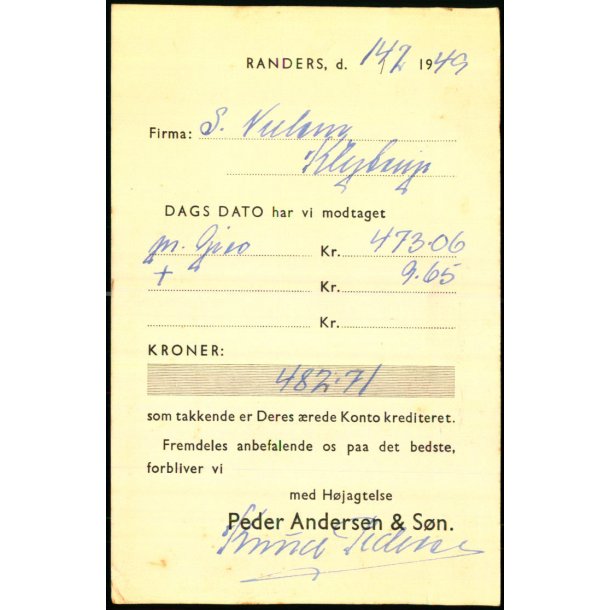 RANDERS, d. 14/2 1949
Firma: S. Nielsen
DAGS DATO har vi modtaget
pr. Giro Kr. 473.06
+ Kr. 9.65
Kr.
KRONER:
482.71
som takkende er Deres ærede Konto krediteret.
Fremdeles anbefalende os paa det bedste,
forbliver vi
med Højagtelse
Peder Andersen & Søn.